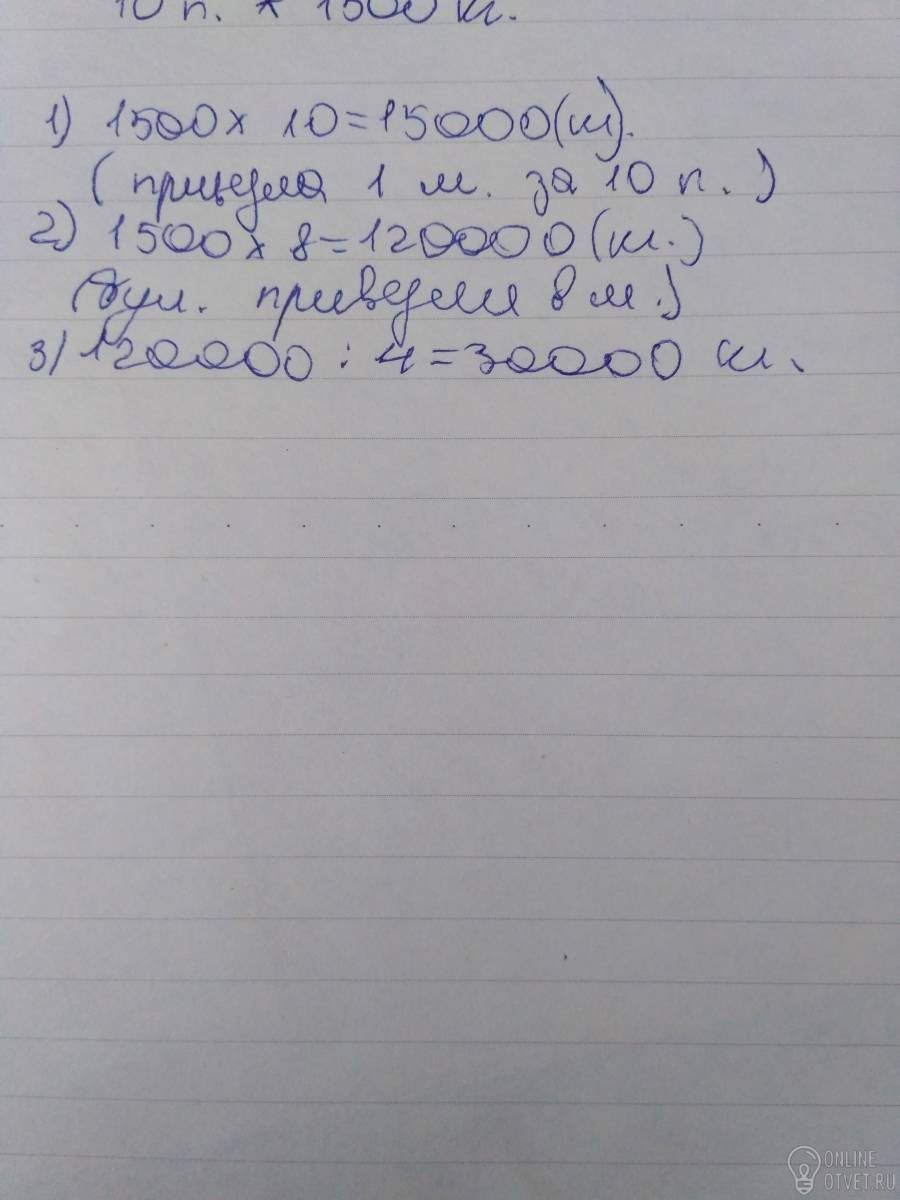 10 п. * 1500 кг.
1) 1500 х 10 = 15000 (кг).
( привезла 1 м. за 10 п. )
2) 1500 х 8 = 120000 (кг.)
привезли 8 м.)
3) 120000 : 4 = 30000 кг.
ONLINE
OTVET.RU